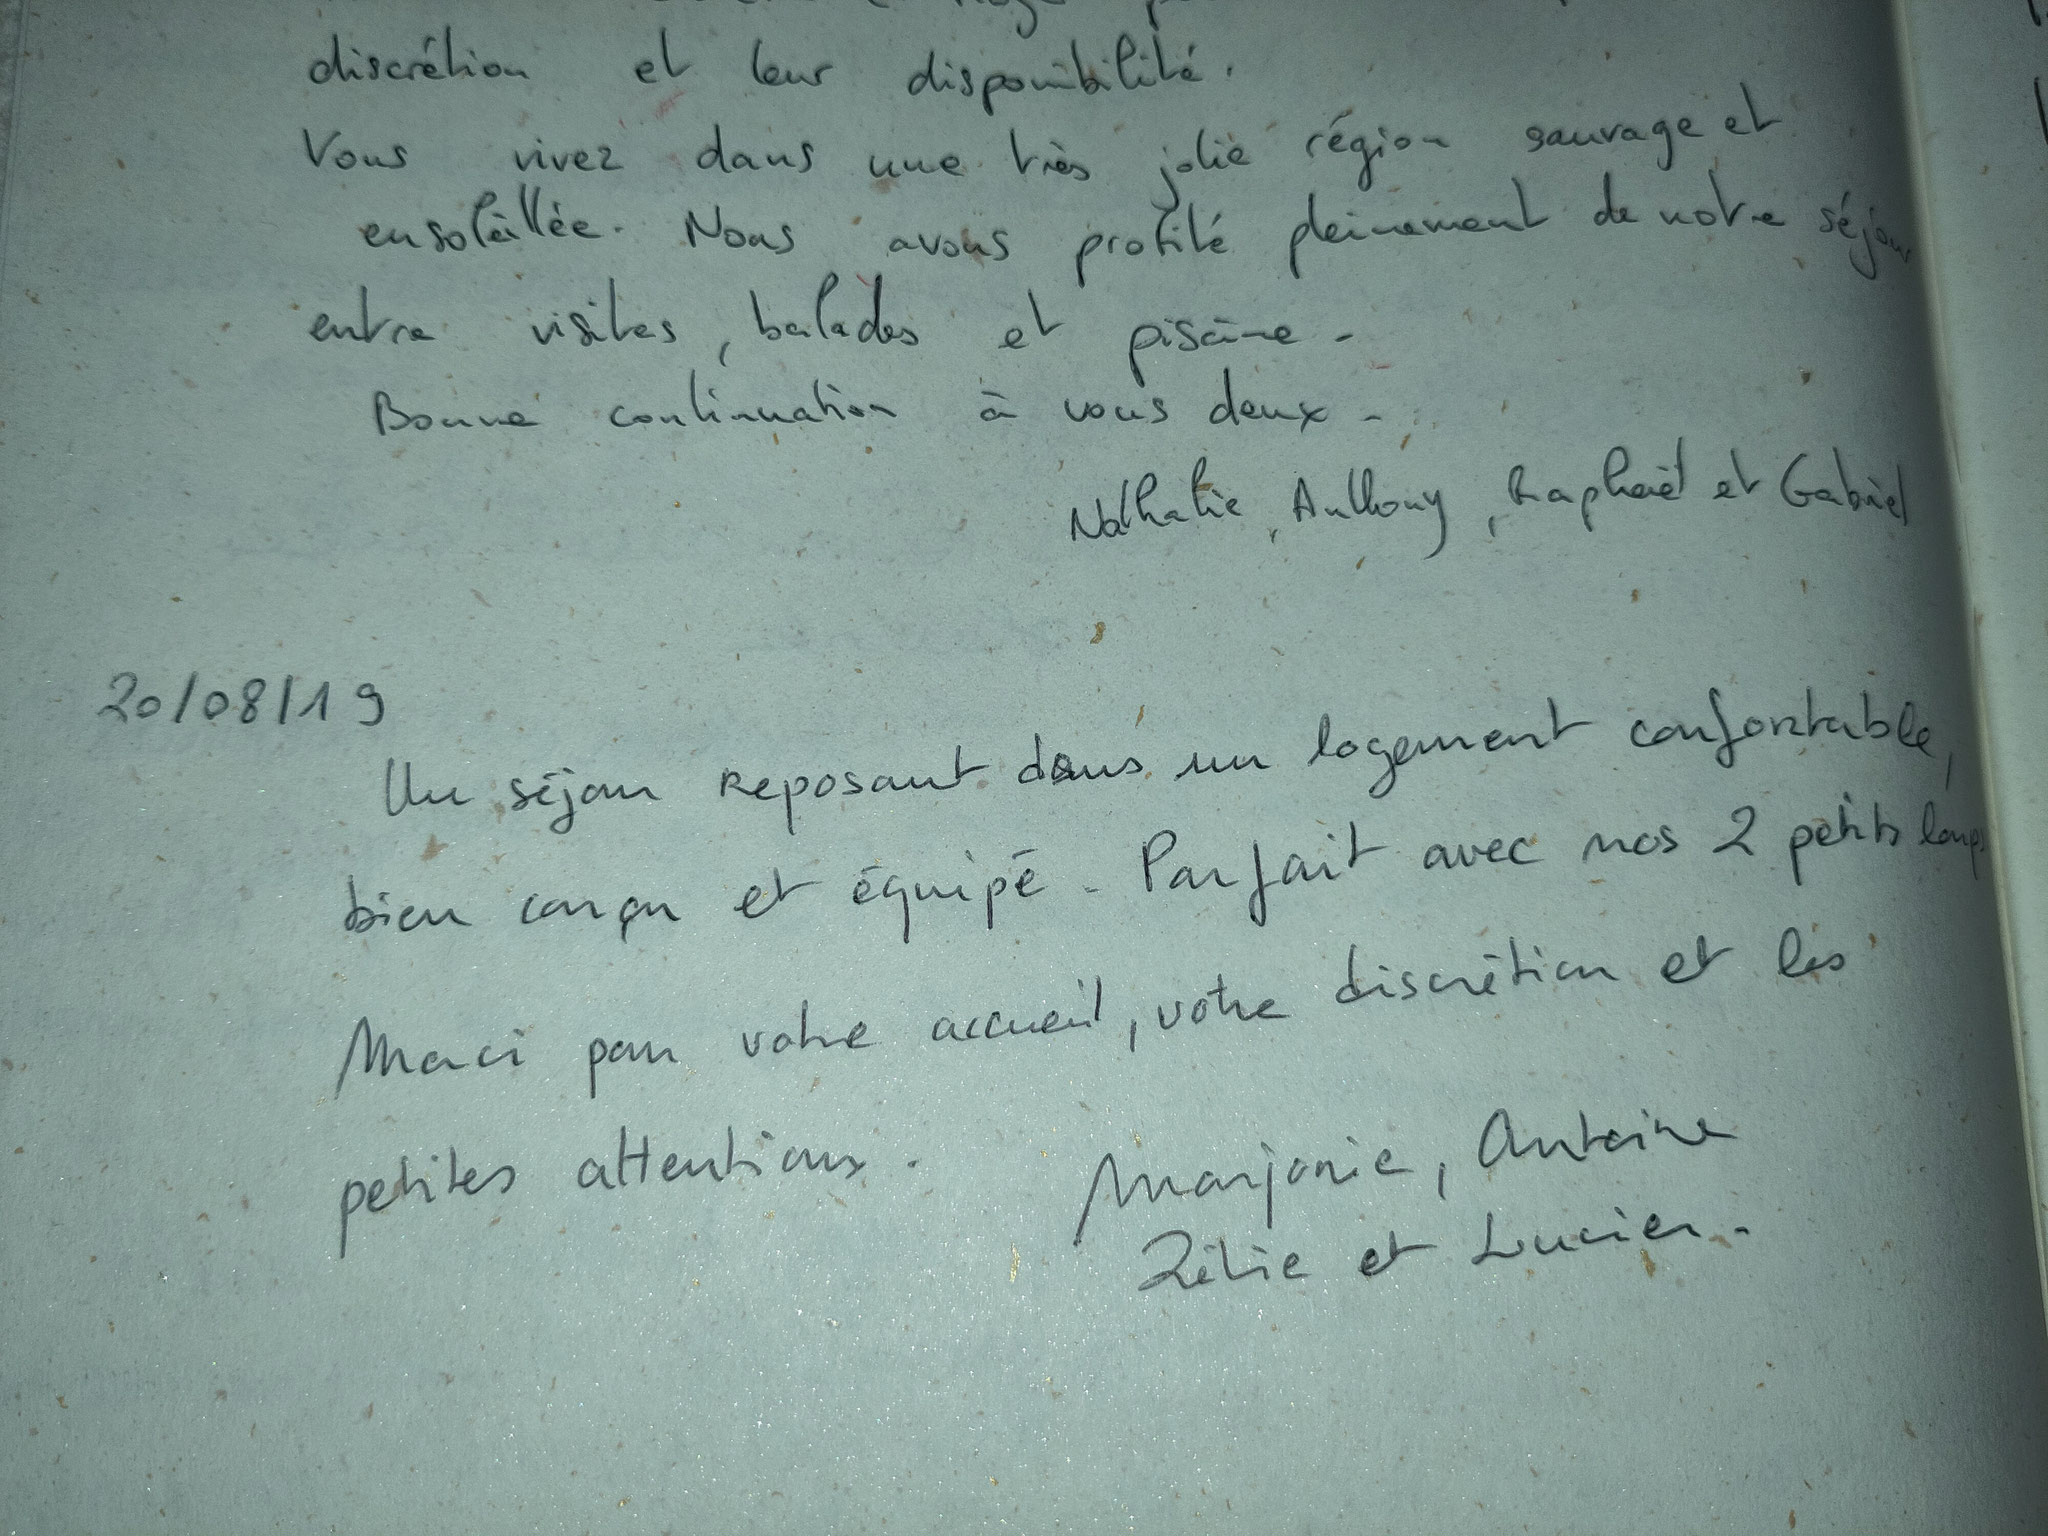 discrétion et leur disponibilité.
Vous vivez dans une très jolie région sauvage et
ensoleillée. Nous avons profité pleinement de notre séjour
entre visites, balades et piscine -
Bonne continuation à vous deux -
Nathalie, Anthony, Raphaël et Gabriel
20/08/19
Un séjour reposant dans un logement confortable,
bien conçu et équipé. Parfait avec nos 2 petits loups
Merci pour votre accueil, votre discrétion et les
petites attentions.
Marjorie, Antoine
Zélie et Lucien.